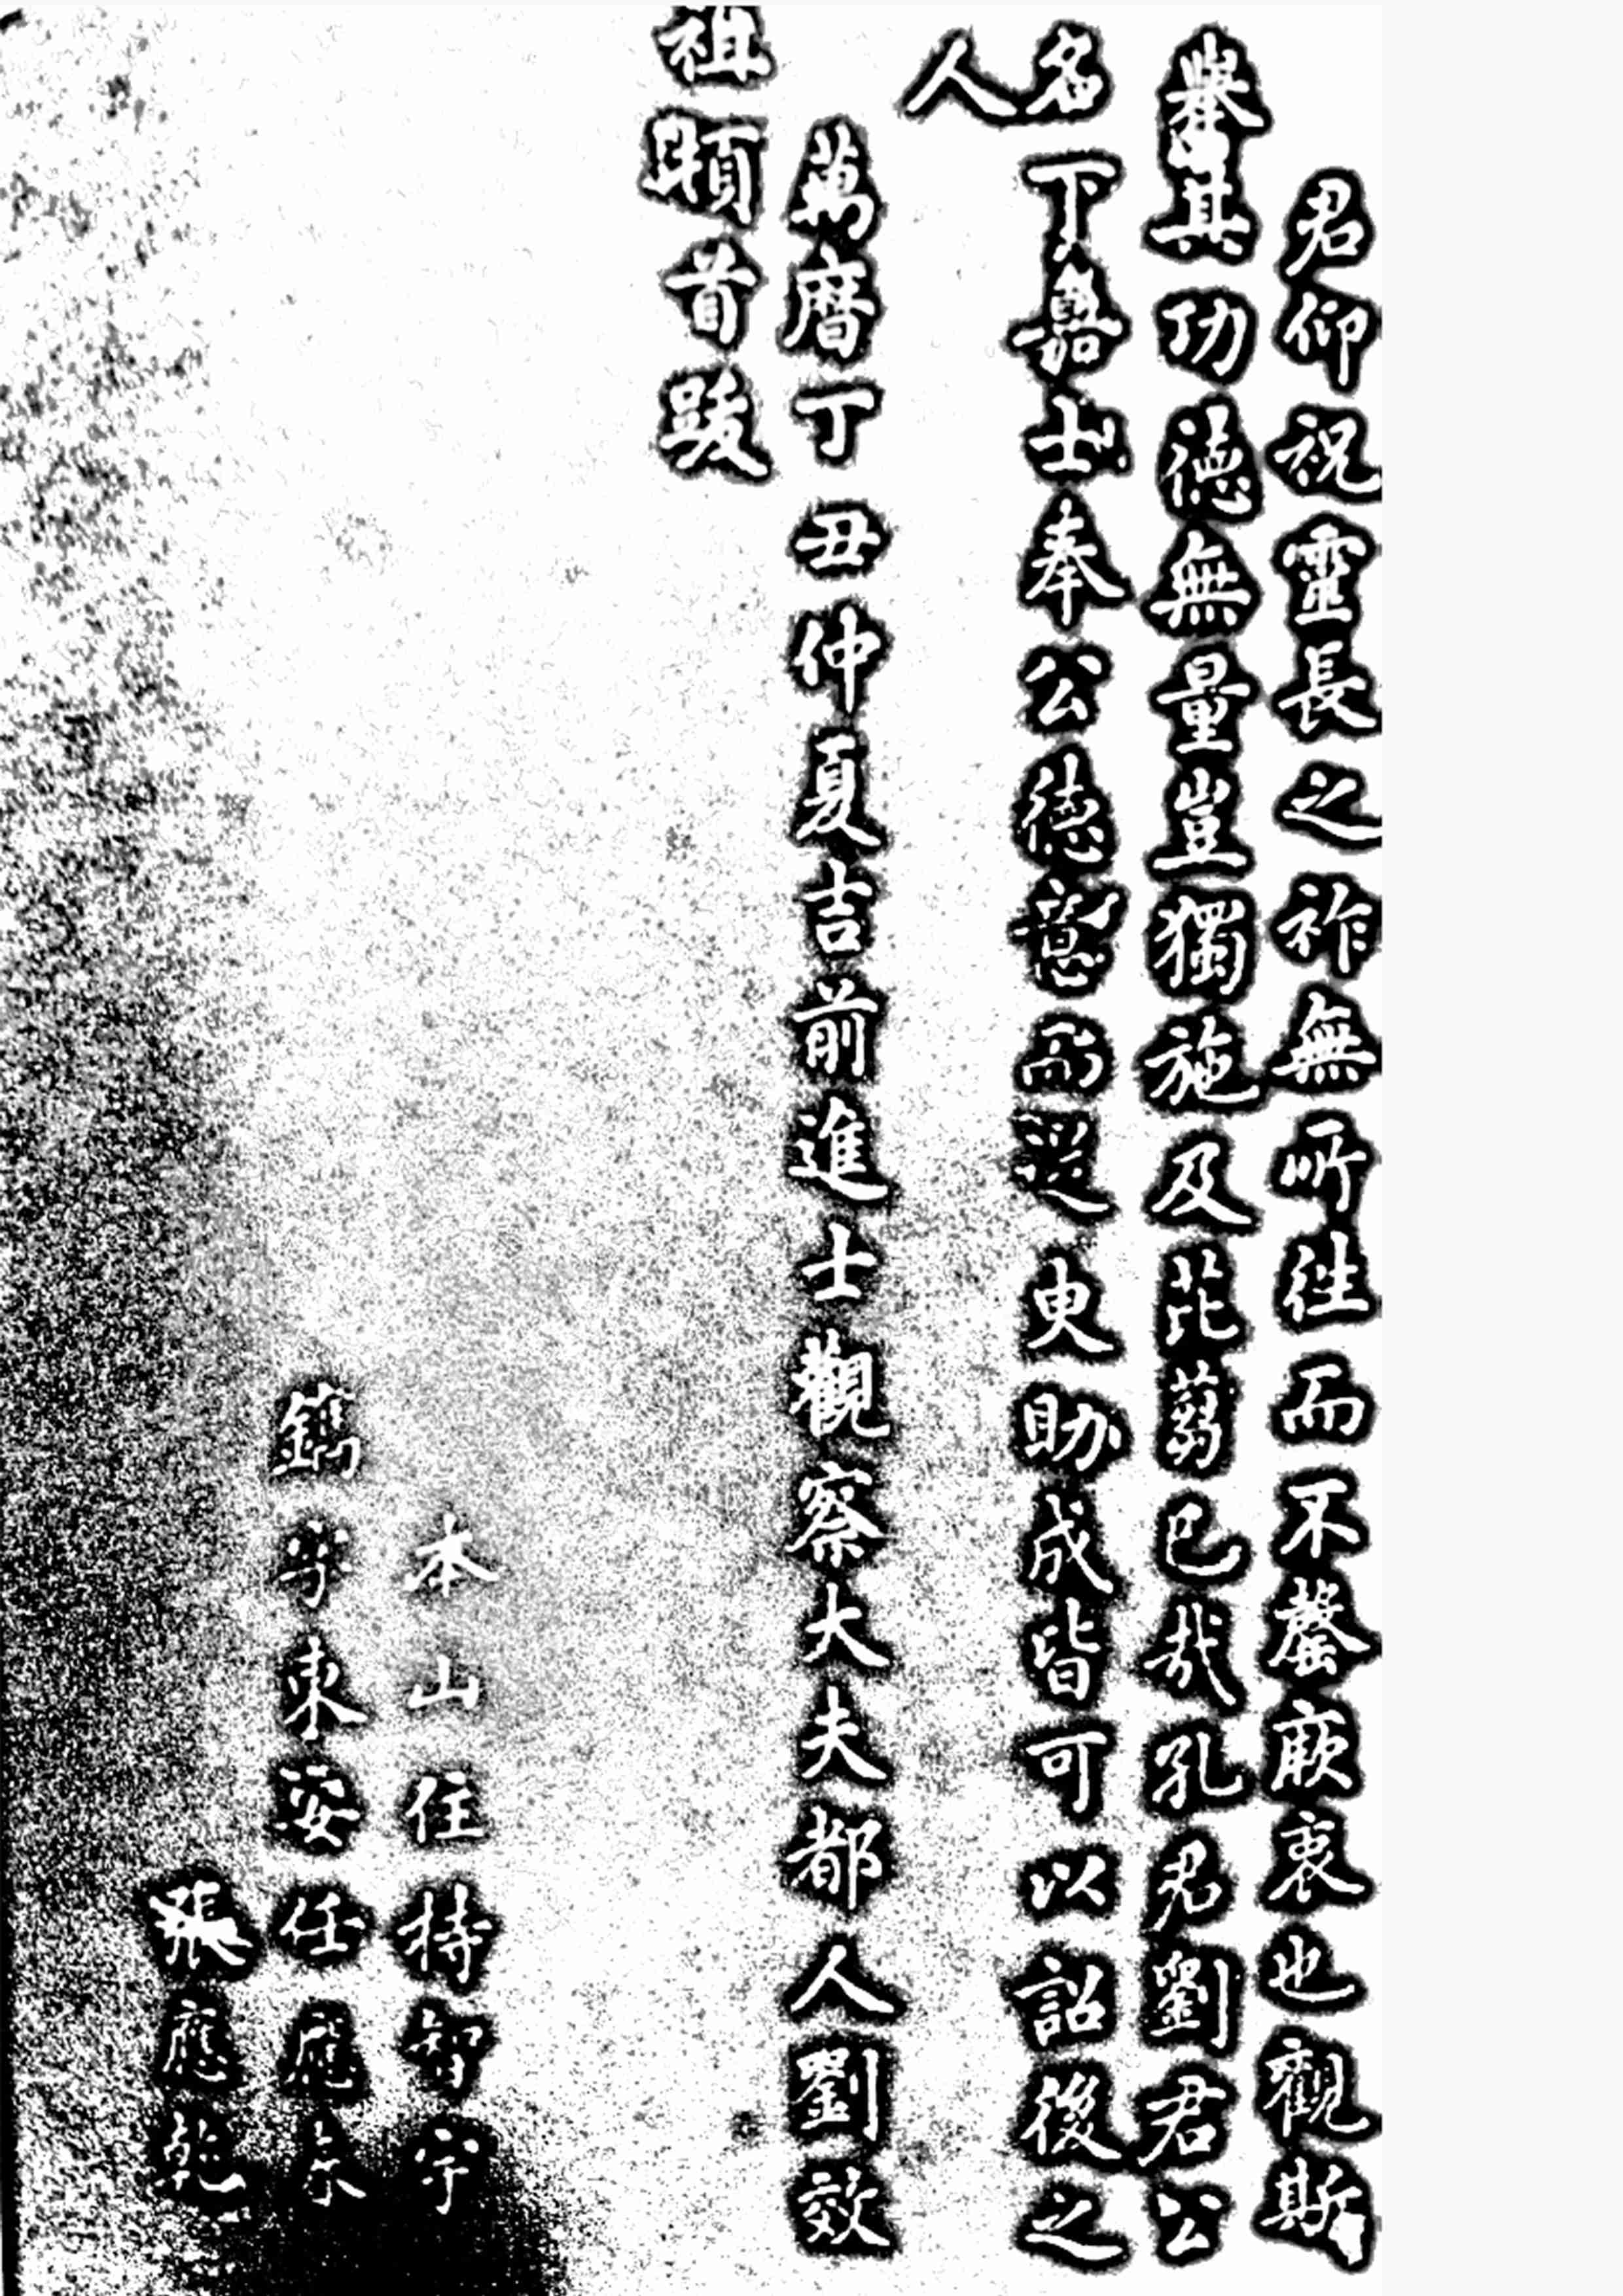 君仰祝靈長之祚無所往而不罄厥衷也觀斯
舉其功德無量豈獨施及芘蒭已哉孔君劉君公
名下嘉士奉公德意而從臾助成皆可以詔後之
人
萬曆丁丑仲夏吉前進士觀察大夫都人劉效
祖頓首跋
本山住持智宇
鐫字東安任應
張應乾